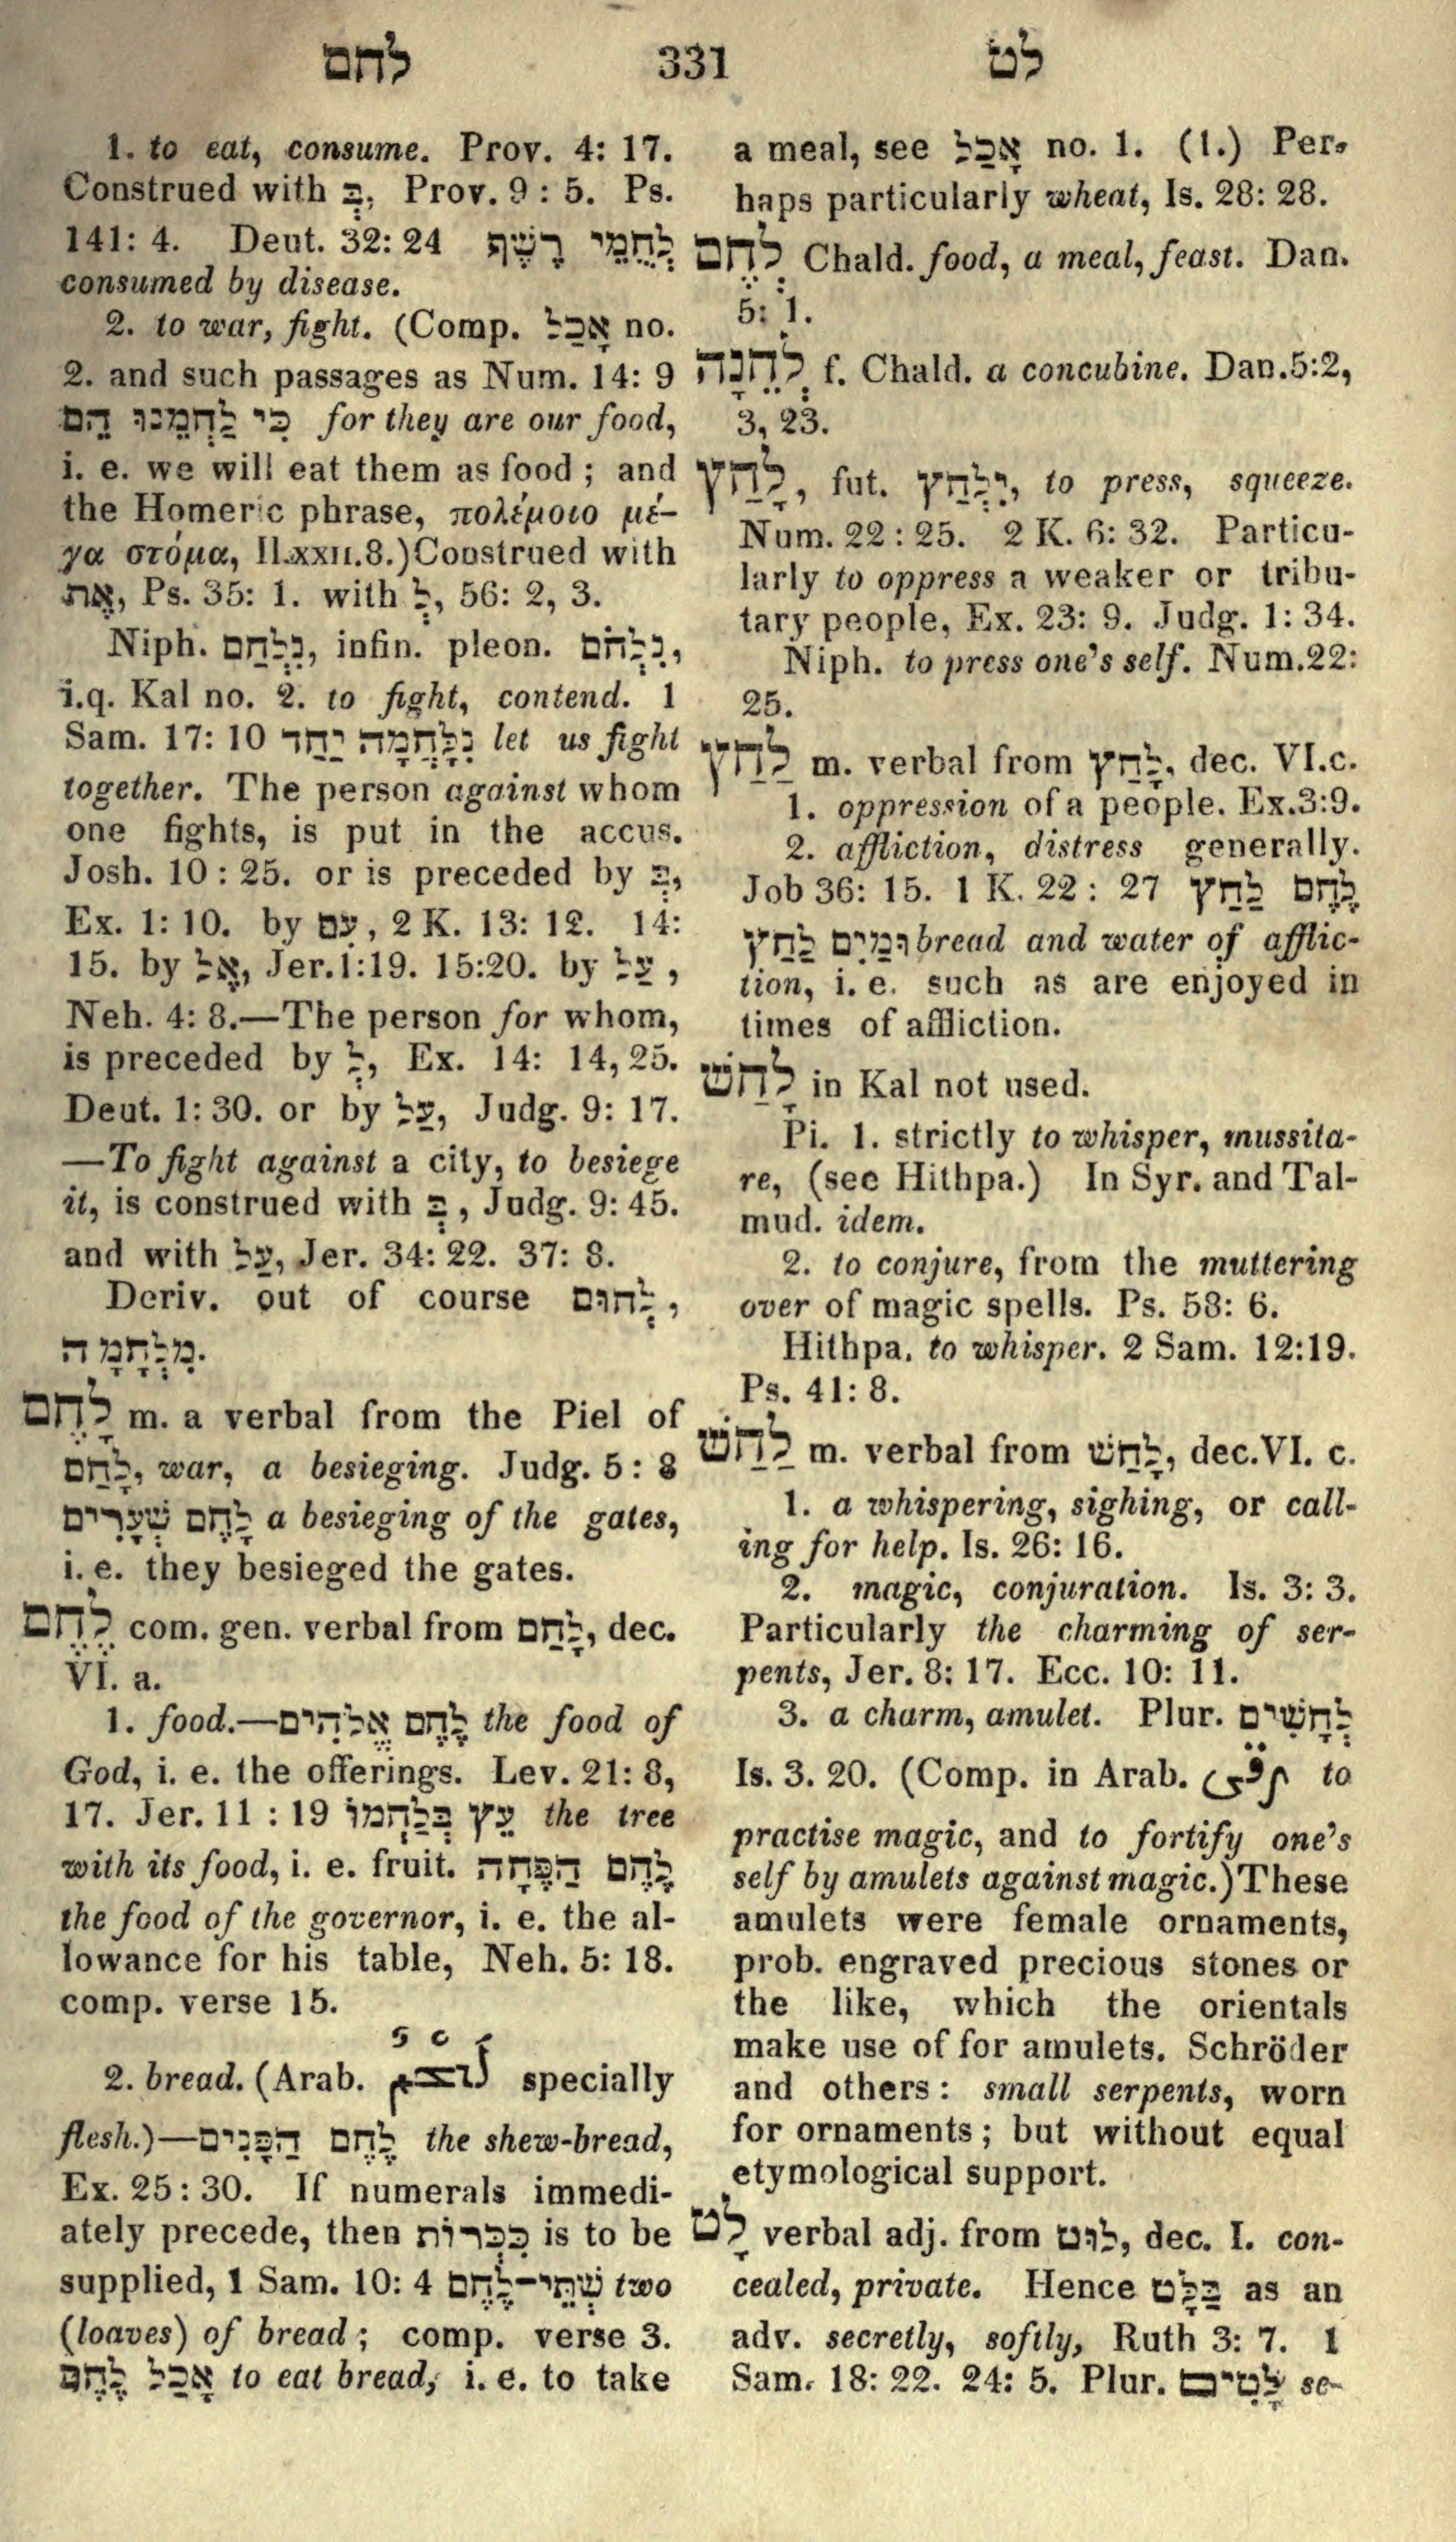 להם 331 לט
1. to eat, consume. Prov. 4: 17.
Construed with בְּ, Prov. 9 : 5. Ps.
141: 4. Deut. 32: 24 לְחֻמֵי רֶשֶׁף
consumed by disease.
2. to war, fight. (Comp. אָכַל no.
2. and such passages as Num. 14: 9
כִּי לַחְמֵנוּ הֵם for they are our food,
i. e. we will eat them as food ; and
the Homeric phrase, πολέμοιο μέ-
γα στόμα, Il.xxii.8.) Construed with
אֶת, Ps. 35: 1. with לְ, 56: 2, 3.
Niph. נִלְחַם, infin. pleon. נִלְחֹם,
i.q. Kal no. 2. to fight, contend. 1
Sam. 17: 10 נִלָּחֲמָה יַחַד let us fight
together. The person against whom
one fights, is put in the accus.
Josh. 10 : 25. or is preceded by בְּ,
Ex. 1: 10. by עִם, 2 K. 13: 12. 14:
15. by אֶל, Jer.1:19. 15:20. by עַל,
Neh. 4: 8.—The person for whom,
is preceded by לְ, Ex. 14: 14, 25.
Deut. 1: 30. or by עַל, Judg. 9: 17.
—To fight against a city, to besiege
it, is construed with בְּ, Judg. 9: 45.
and with עַל, Jer. 34: 22. 37: 8.
Deriv. out of course לְחוּם,
מִלְחָמָה.
לָחֶם m. a verbal from the Piel of
לָחַם, war, a besieging. Judg. 5 : 8
לָחֶם שְׁעָרִים a besieging of the gates,
i. e. they besieged the gates.
לֶחֶם com. gen. verbal from לָחַם, dec.
VI. a.
1. food.—לֶחֶם אֱלֹהִים the food of
God, i. e. the offerings. Lev. 21: 8,
17. Jer. 11 : 19 עֵץ בְּלַחְמוֹ the tree
with its food, i. e. fruit. לֶחֶם הַפֶּחָה
the food of the governor, i. e. the al-
lowance for his table, Neh. 5: 18.
comp. verse 15.
2. bread. (Arab. لَحْمٌ specially
flesh.)—לֶחֶם הַפָּנִים the shew-bread,
Ex. 25 : 30. If numerals immedi-
ately precede, then כִּכְּרוֹת is to be
supplied, 1 Sam. 10: 4 שְׁתֵּי־לֶחֶם two
(loaves) of bread ; comp. verse 3.
אָכַל לֶחֶם to eat bread, i. e. to take
a meal, see אָכַל no. 1. (1.) Per-
haps particularly wheat, Is. 28: 28.
לְחֶם Chald. food, a meal, feast. Dan.
5: 1.
לְחֵנָה f. Chald. a concubine. Dan.5:2,
3, 23.
לָחַץ, fut. יִלְחַץ, to press, squeeze.
Num. 22 : 25. 2 K. 6: 32. Particu-
larly to oppress a weaker or tribu-
tary people, Ex. 23: 9. Judg. 1: 34.
Niph. to press one's self. Num.22:
25.
לַחַץ m. verbal from לָחַץ, dec. VI.c.
1. oppression of a people. Ex.3:9.
2. affliction, distress generally.
Job 36: 15. 1 K. 22 : 27 לֶחֶם לַחַץ
וּמַיִם לַחַץ bread and water of afflic-
tion, i. e. such as are enjoyed in
times of affliction.
לָחַשׁ in Kal not used.
Pi. 1. strictly to whisper, mussita-
re, (see Hithpa.) In Syr. and Tal-
mud. idem.
2. to conjure, from the muttering
over of magic spells. Ps. 58: 6.
Hithpa. to whisper. 2 Sam. 12:19.
Ps. 41: 8.
לַחַשׁ m. verbal from לָחַשׁ, dec.VI. c.
1. a whispering, sighing, or call-
ing for help. Is. 26: 16.
2. magic, conjuration. Is. 3: 3.
Particularly the charming of ser-
pents, Jer. 8: 17. Ecc. 10: 11.
3. a charm, amulet. Plur. לְחָשִׁים
Is. 3. 20. (Comp. in Arab. رقى to
practise magic, and to fortify one's
self by amulets against magic.) These
amulets were female ornaments,
prob. engraved precious stones or
the like, which the orientals
make use of for amulets. Schröder
and others : small serpents, worn
for ornaments ; but without equal
etymological support.
לָט verbal adj. from לוּט, dec. I. con-
cealed, private. Hence בַּלָּט as an
adv. secretly, softly, Ruth 3: 7. 1
Sam. 18: 22. 24: 5. Plur. לָטִים se-